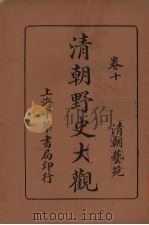 卷十
清朝藝苑
清朝野史大觀
上海中華書局印行